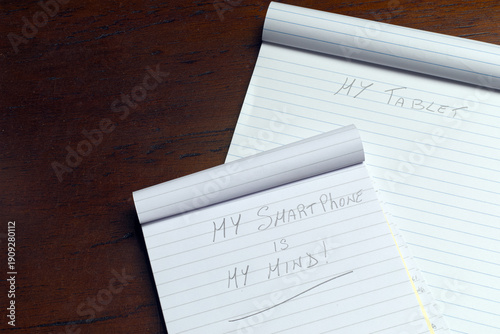 MY TABLET
MY SMARTPHONE
IS
MY MIND!
Adobe Stock | #1909280112